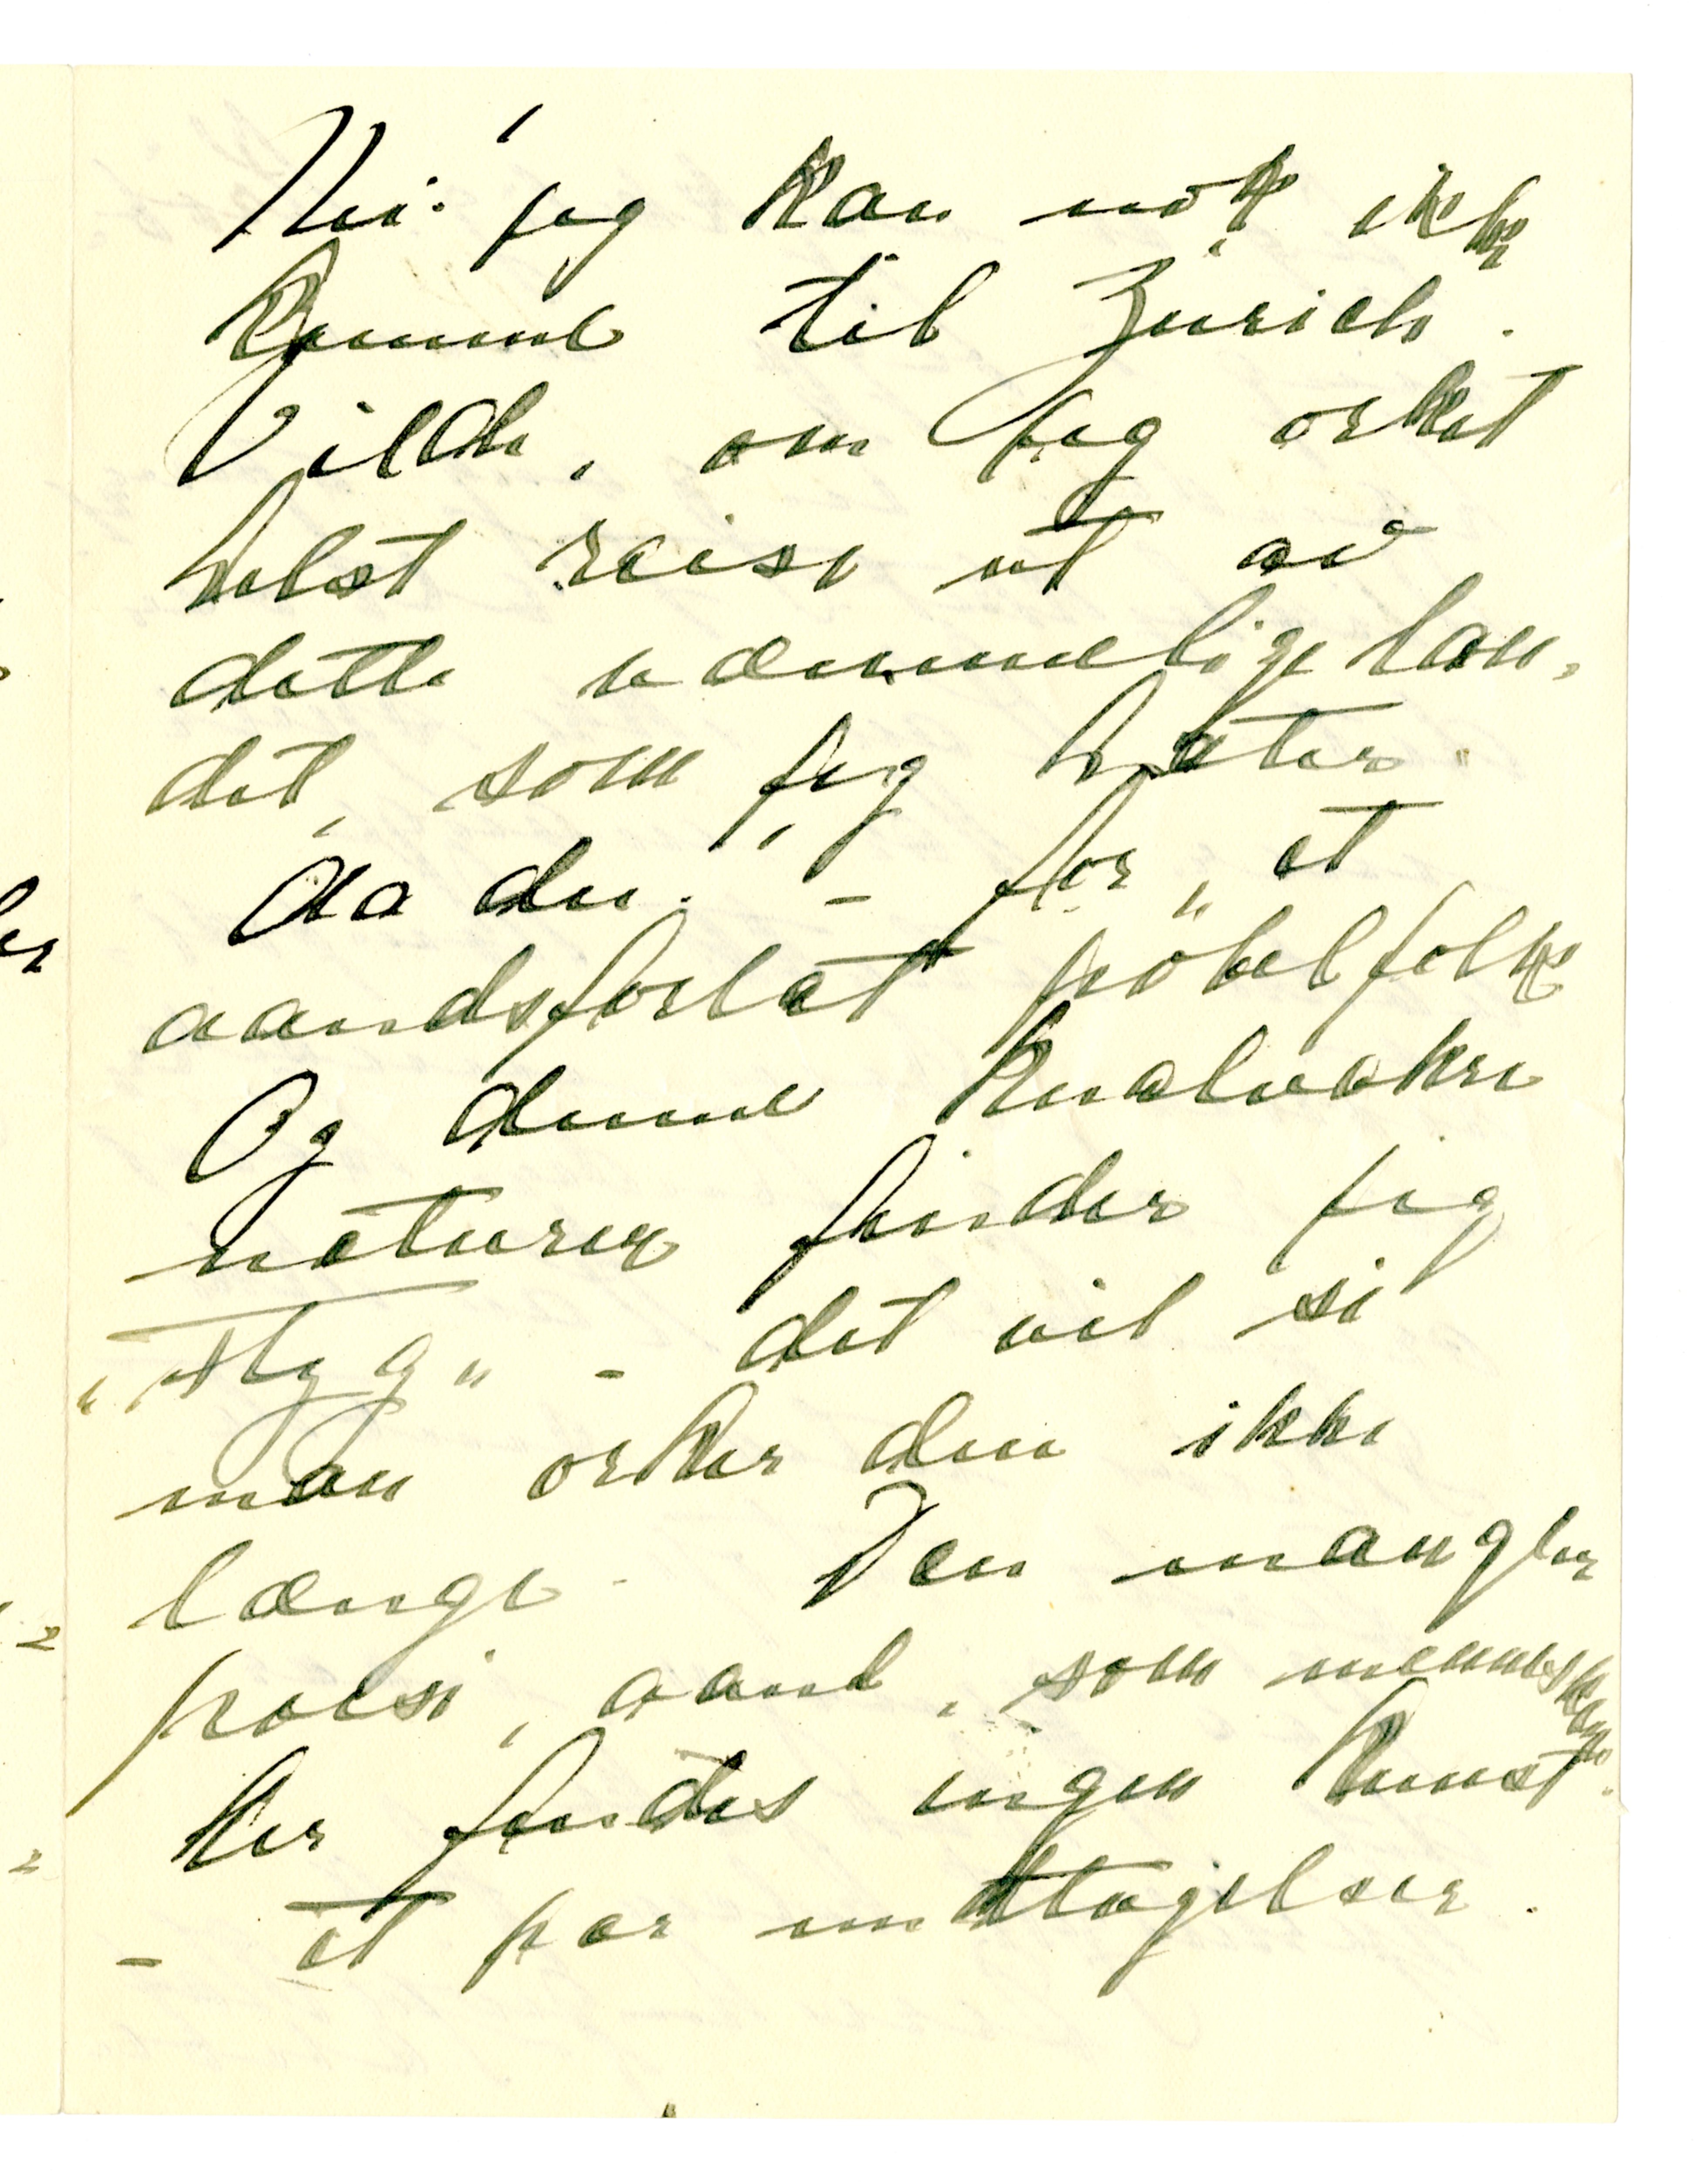 Nei jeg kan nok ikke
komme til Zürich.
Vilde, om jeg orket
helst reise ut av
dette uæmmelige lan-
det, som jeg hater.
Aa du. - for „et
aandsforlat pøbelfolk
Og denne knalvakre
naturen finder jeg
„styg" - det vil si
man orker den ikke
længe. Den mangler
poesi, aand, som menneskene.
Her findes ingen kunst.
- et par undtagelser.